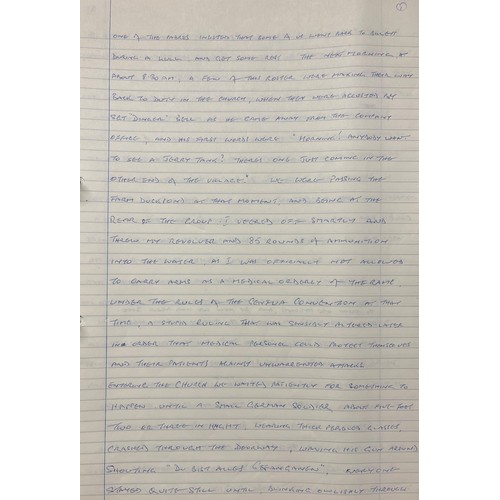 5
ONE OF THE PADRES INSISTED THAT SOME OF US WENT BACK TO BILLET
DURING A LULL, AND GOT SOME REST. THE NEXT MORNING AT
ABOUT 8.30 AM, A FEW OF THIS ROSTER WERE MAKING THEIR WAY
BACK TO DUTY IN THE CHURCH, WHEN THEY WERE ACCOSTED BY
SGT "DUSTER" BULL AS HE CAME AWAY FROM THE COMPANY
OFFICE, AND HIS FIRST WORDS WERE "MORNING! ANYBODY WANT
TO SEE A JERRY TANK? THERE'S ONE JUST COMING IN THE
OTHER END OF THE VILLAGE". WE WERE PASSING THE
FARM DUCKPOND AT THAT MOMENT, AND BEING AT THE
REAR OF THE GROUP I VEERED OFF SMARTLY AND
THREW MY REVOLVER AND 25 ROUNDS OF AMMUNITION
INTO THE WATER, AS I WAS OFFICIALLY NOT ALLOWED
TO CARRY ARMS AS A MEDICAL ORDERLY OF THE RAMC
UNDER THE RULES OF THE GENEVA CONVENTION AT THAT
TIME, A STUPID RULING THAT WAS SENSIBLY ALTERED LATER
IN ORDER THAT MEDICAL PERSONEL COULD PROTECT THEMSELVES
AND THEIR PATIENTS AGAINST UNWARRENTED ATTACKS
ENTERING THE CHURCH WE WAITED PATIENTLY FOR SOMETHING TO
HAPPEN UNTIL A SMALL GERMAN SOLDIER, ABOUT FIVE-FOOT
TWO OR THREE IN HEIGHT, WEARING THICK PEBBLED GLASSES,
CRASHED THROUGH THE DOORWAY, WAVING HIS GUN AROUND
SHOUTING "DU BIST ALLES GEFANGENEN", EVERYONE
STAYED QUITE STILL UNTIL, THROUGH